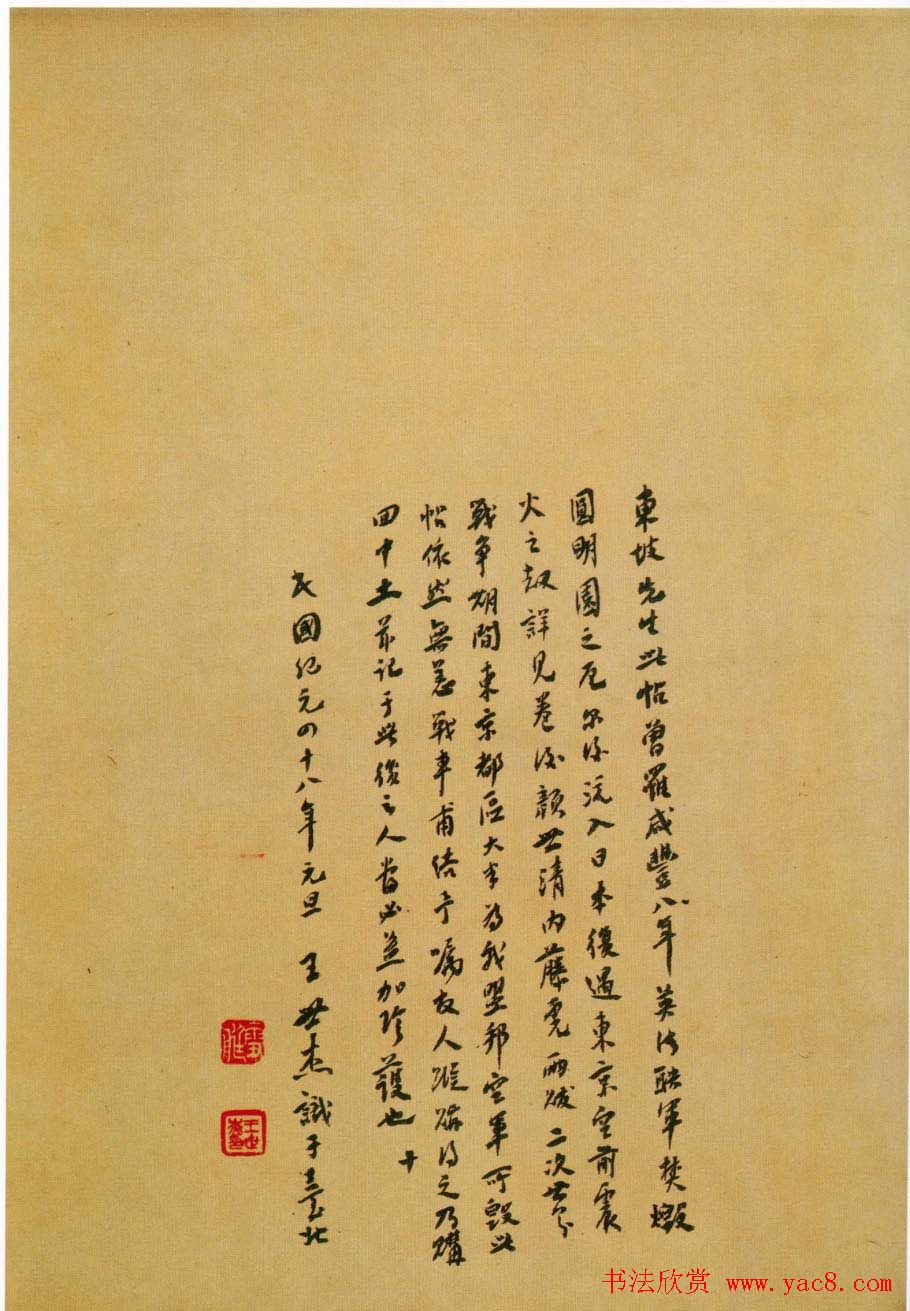 東坡先生此帖曾罹咸豐八年英法聯軍焚燬
圓明園之厄尔後流入日本復遇東京空前震
火之劫詳見卷後顏世清内藤虎兩跋二次世界
戰争期間東京都區大半為我盟邦空軍所毁此
帖依然無恙戰事甫結予嘱友人蹤跡得之乃購
回中土並記于此後之人當必益加珍護也 十
民國紀元四十八年元旦 王世杰識于臺北
王世杰
书法欣赏 www.yac8.com